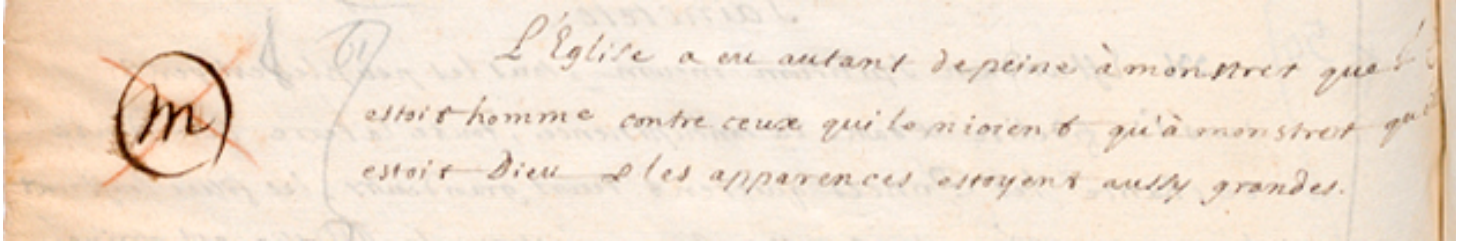 L'Église a eu autant de peine à monstrer que
m
estoit homme contre ceux qui le nioient qu'à monstrer
estoit Dieu & les apparences estoyent aussy grandes.